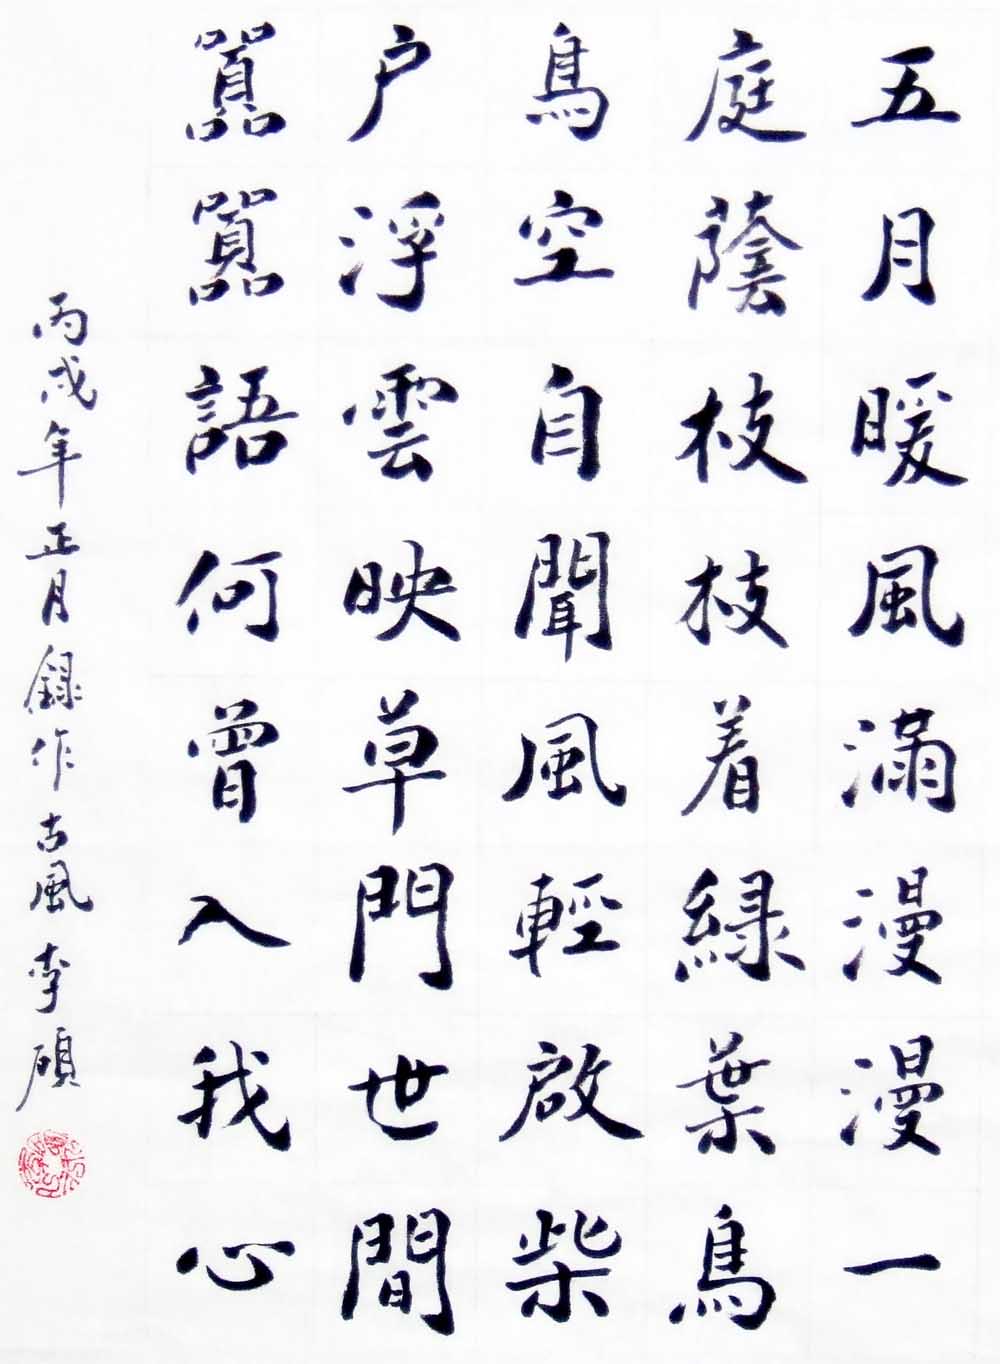 五月暖風滿漫漫一
庭蔭枝枝着緑葉鳥
鳥空自聞風輕啟柴
户浮雲映草門世間
囂囂語何曾入我心
丙戌年正月録作古風李碩